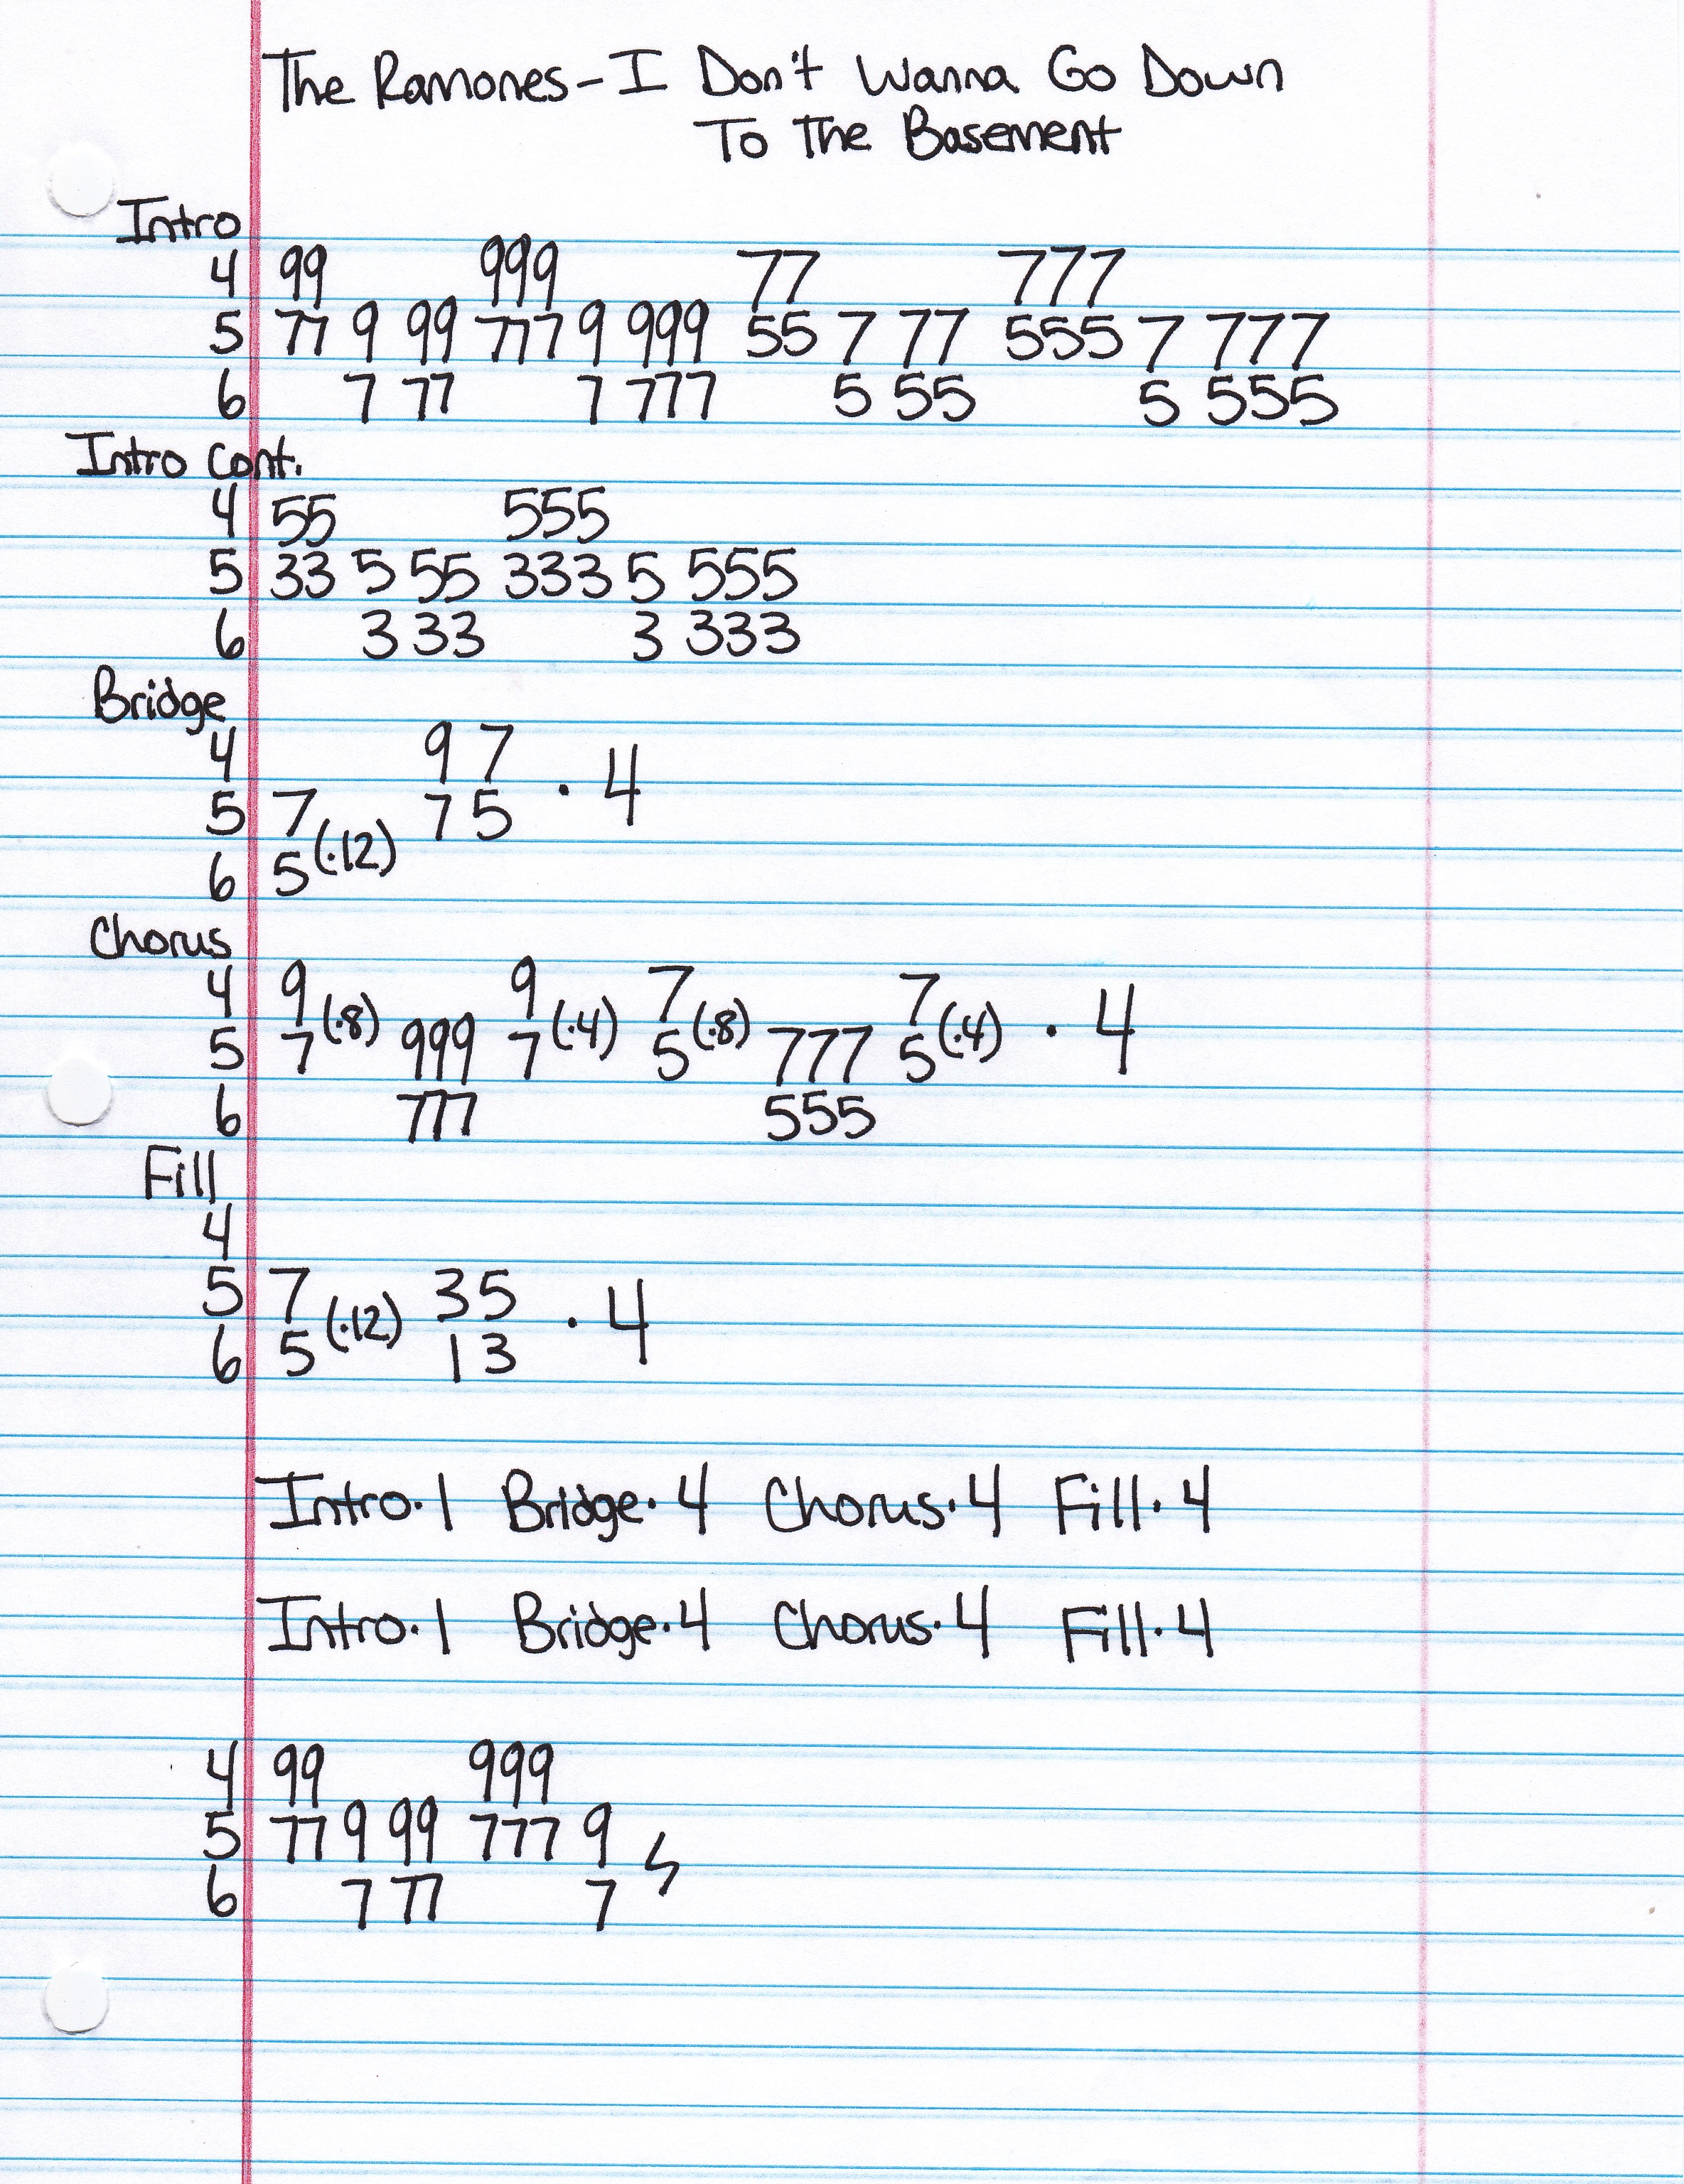 The Ramones - I Don't Wanna Go Down
To The Basement
Intro
4 99 999 77 777
5 77 9 99 777 9 999 55 7 77 555 7 777
6 7 77 7 777 5 55 5 555
Intro Cont.
4 55 555
5 33 5 55 333 5 555
6 3 33 3 333
Bridge
4 9 7
5 7 7 5 · 4
6 5 (·12)
Chorus
4 9 9 7 7
5 7 (·8) 999 7 (·4) 5 (·8) 777 5 (·4) · 4
6 777 555
Fill
4
5 7 3 5
6 5 (·12) 1 3 · 4
Intro·1 Bridge·4 Chorus·4 Fill·4
Intro·1 Bridge·4 Chorus·4 Fill·4
4 99 999
5 77 9 99 777 9
6 7 77 7